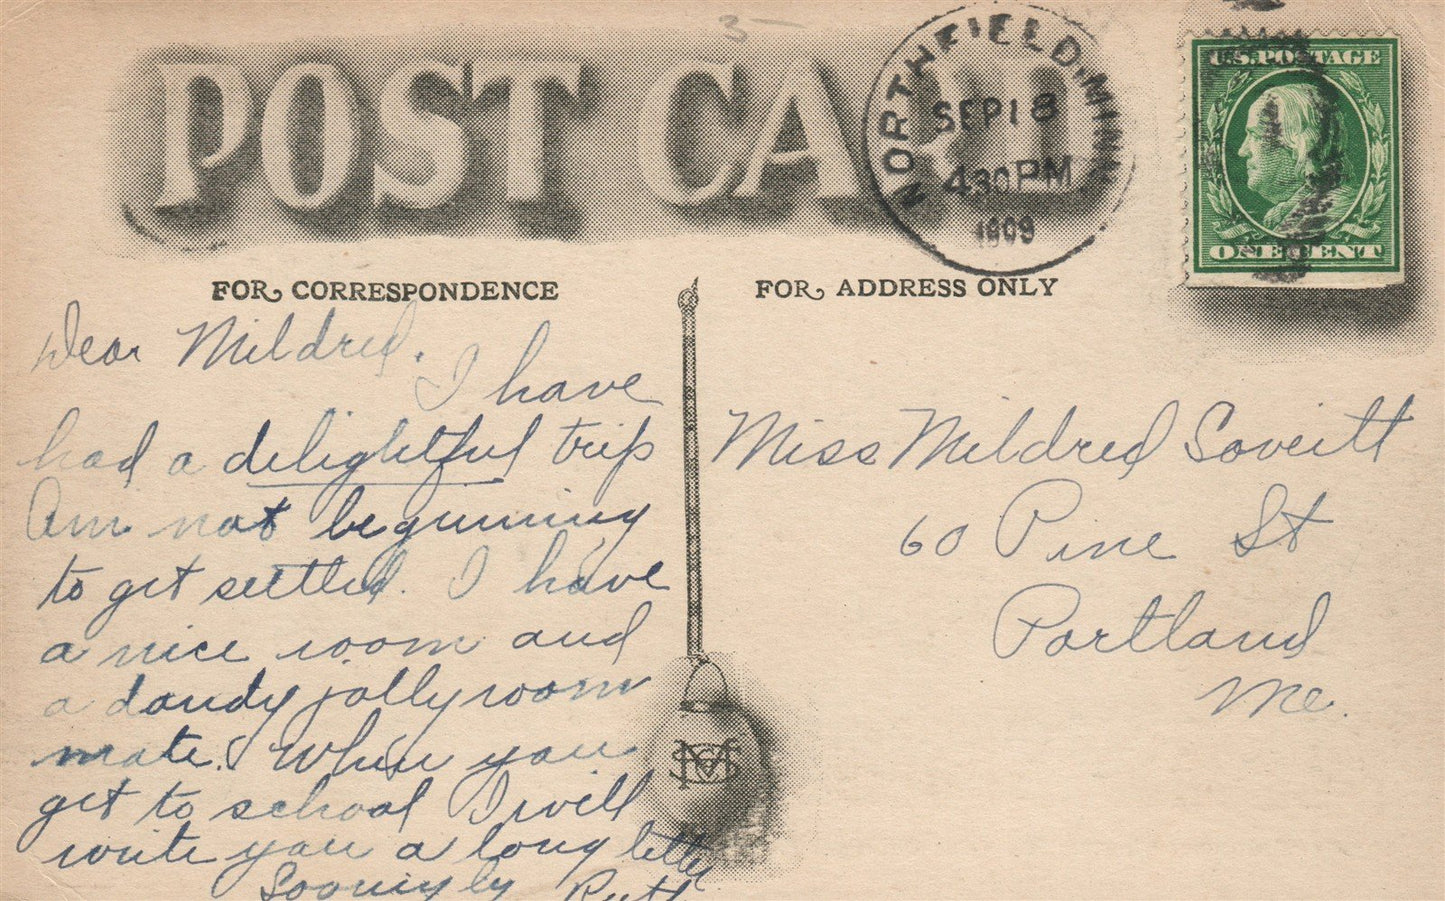 3-
POST CARD
NORTHFIELD, MINN.
SEP 18
430 PM
1909
U.S. POSTAGE
ONE CENT
FOR CORRESPONDENCE
FOR ADDRESS ONLY
Dear Mildred.
I have
had a delightful trip
Am not beginning
to get settled. I have
a nice room and
a dandy jolly room
mate. When you
get to school I will
write you a long letter
Ruth
Miss Mildred
60 Pine St
Portland
Me.